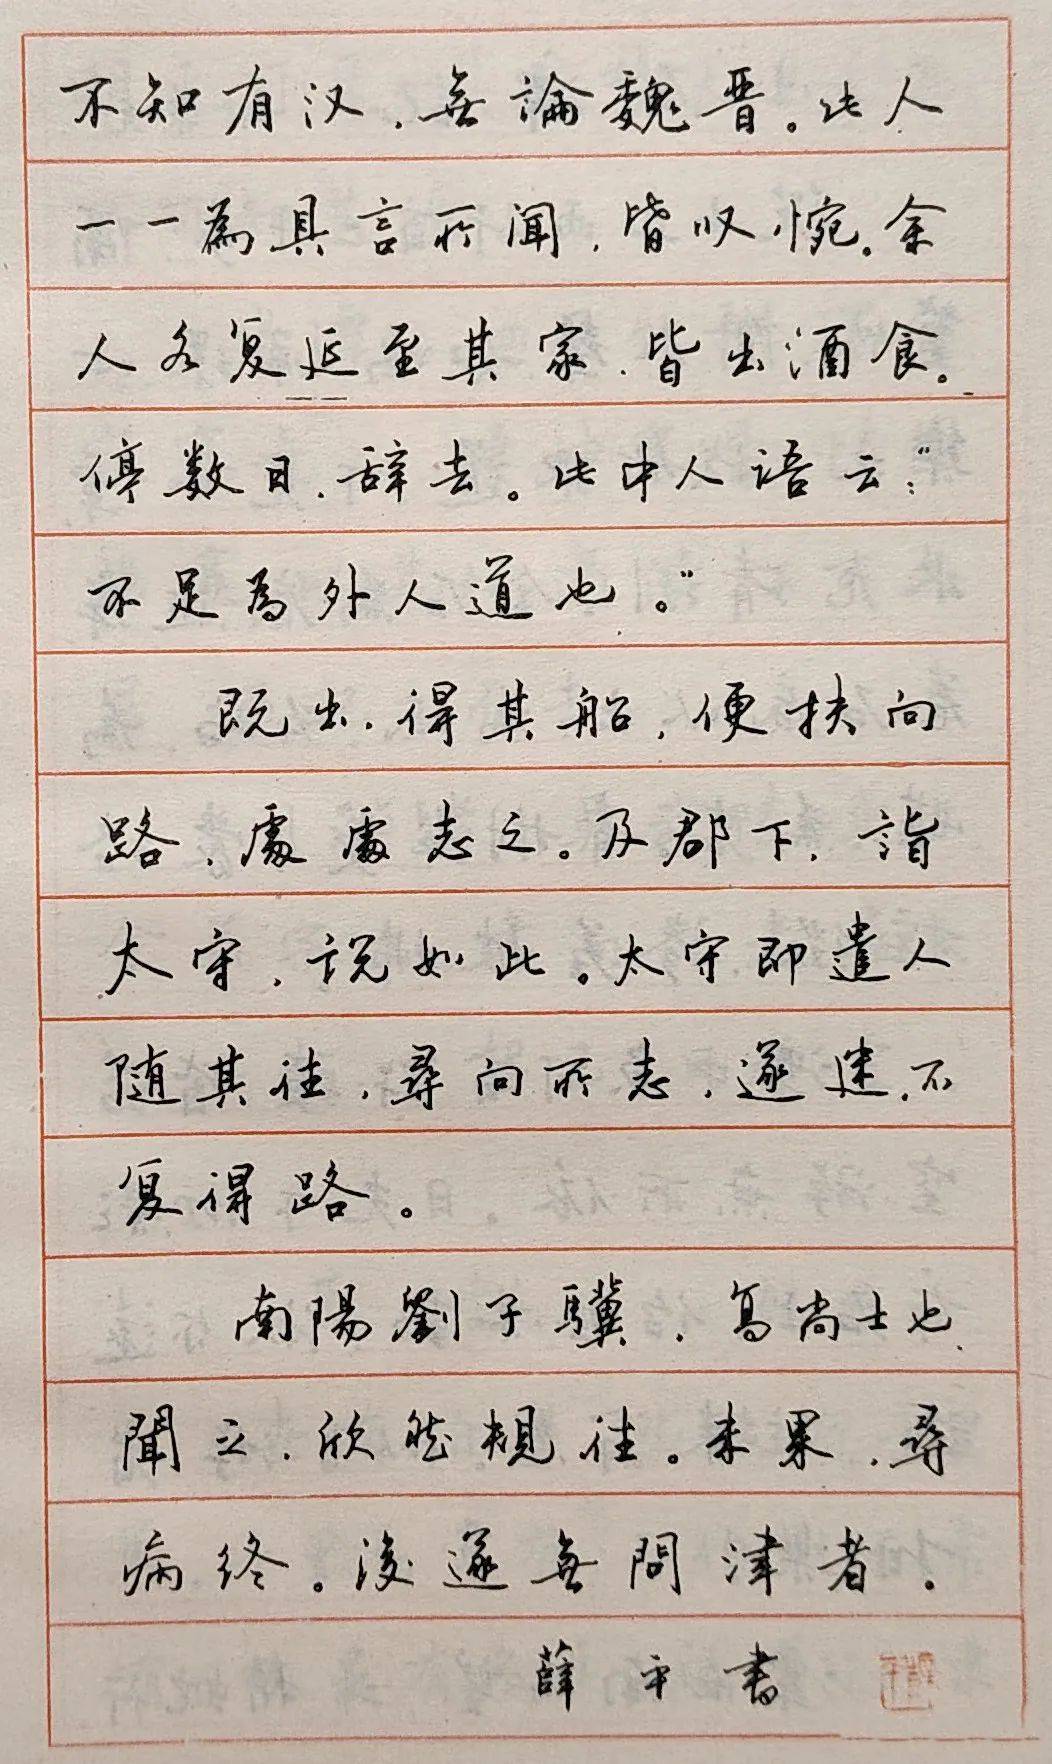 不知有汉，無論魏晋。此人
一一為具言所闻，皆叹惋。余
人各复延至其家，皆出酒食。
停数日，辞去。此中人语云：“
不足為外人道也。”
既出，得其船，便扶向
路，處處志之。及郡下，詣
太守，说如此。太守即遣人
随其往，尋向所志，遂迷，不
复得路。
南陽劉子驥，高尚士也
聞之，欣然規往。未果，尋
病终。後遂無問津者。
薛平書